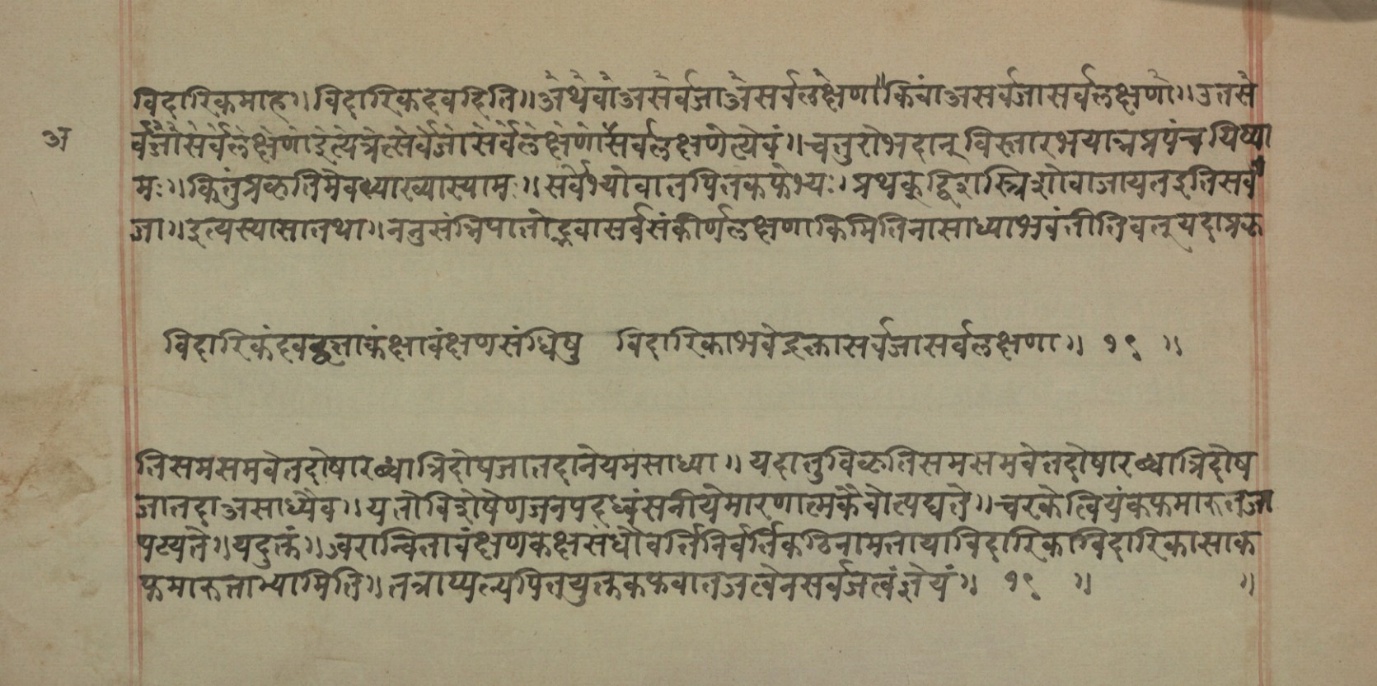 विदारिकमाह॥ विदारिकदवदिति॥ अथवाअसर्वजाअसर्वलक्षणा किंवाअसर्वजासर्वलक्षणा॥ उतस
अ
र्वजासर्वलक्षणाइत्यत्रेत्सर्वजासर्वलक्षणासर्वलक्षणेत्येवं॥ चतुरोभेदान् विस्तारभयान्नप्रपंचयिष्या
मः॥ किंतुंप्रकृतिमेवव्याख्यास्यामः॥ सर्वेभ्योवातपित्तकफेभ्यः। प्रथकूद्विशस्त्रिशोवाजायतइतिसर्व
जा॥ इत्यस्यासातथा॥ ननुसंन्निपातोद्भवासर्वसंकीर्णलक्षणाकिमितिनासाध्याभवंतीतिचलूयदाप्रकृ
विदारिकंदवद्वृत्ताकंक्षावंक्षणसंधिषु विदारिकाभवेद्रक्तासर्वजासर्वलक्षणा॥ १९ ॥
तिसमसमवेतदोषारब्धात्रिदोषजातदानेयमसाध्या॥ यदातुविकृतिसमसमवेतदोषारब्धात्रिदोष
जातदाअसाध्यैव॥ यतोविशेषेणजनपदध्वंसनीयेमारणात्मकैवोत्पद्यते॥ चरकेत्वियंकफमारुतजा
पठ्यते॥ यदुक्तं॥ ज्वरान्वितावंक्षणकक्षसंधौवर्तिनिर्वर्तिकठिनामतायाविदारिकाग्विदारिकासाक
फमारुताभ्यामिति॥ तत्राप्यल्पपित्तयुक्तकफवातजत्वेनसर्वजत्वंज्ञेयं॥ १९ ॥ ॥